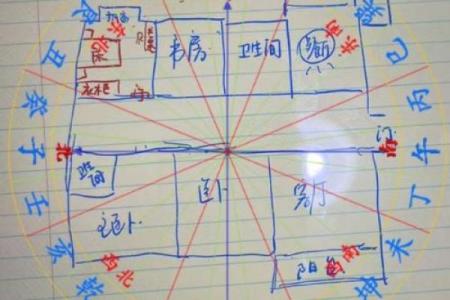 艮
丑
癸
子
壬
亥
乾
巽
巳
丙
午
丁
未
坤
东北
东南
北
南
西北
西南
床
衣柜
门
书房
卫生间
厨
门
主卧
卧
客厅
阳台